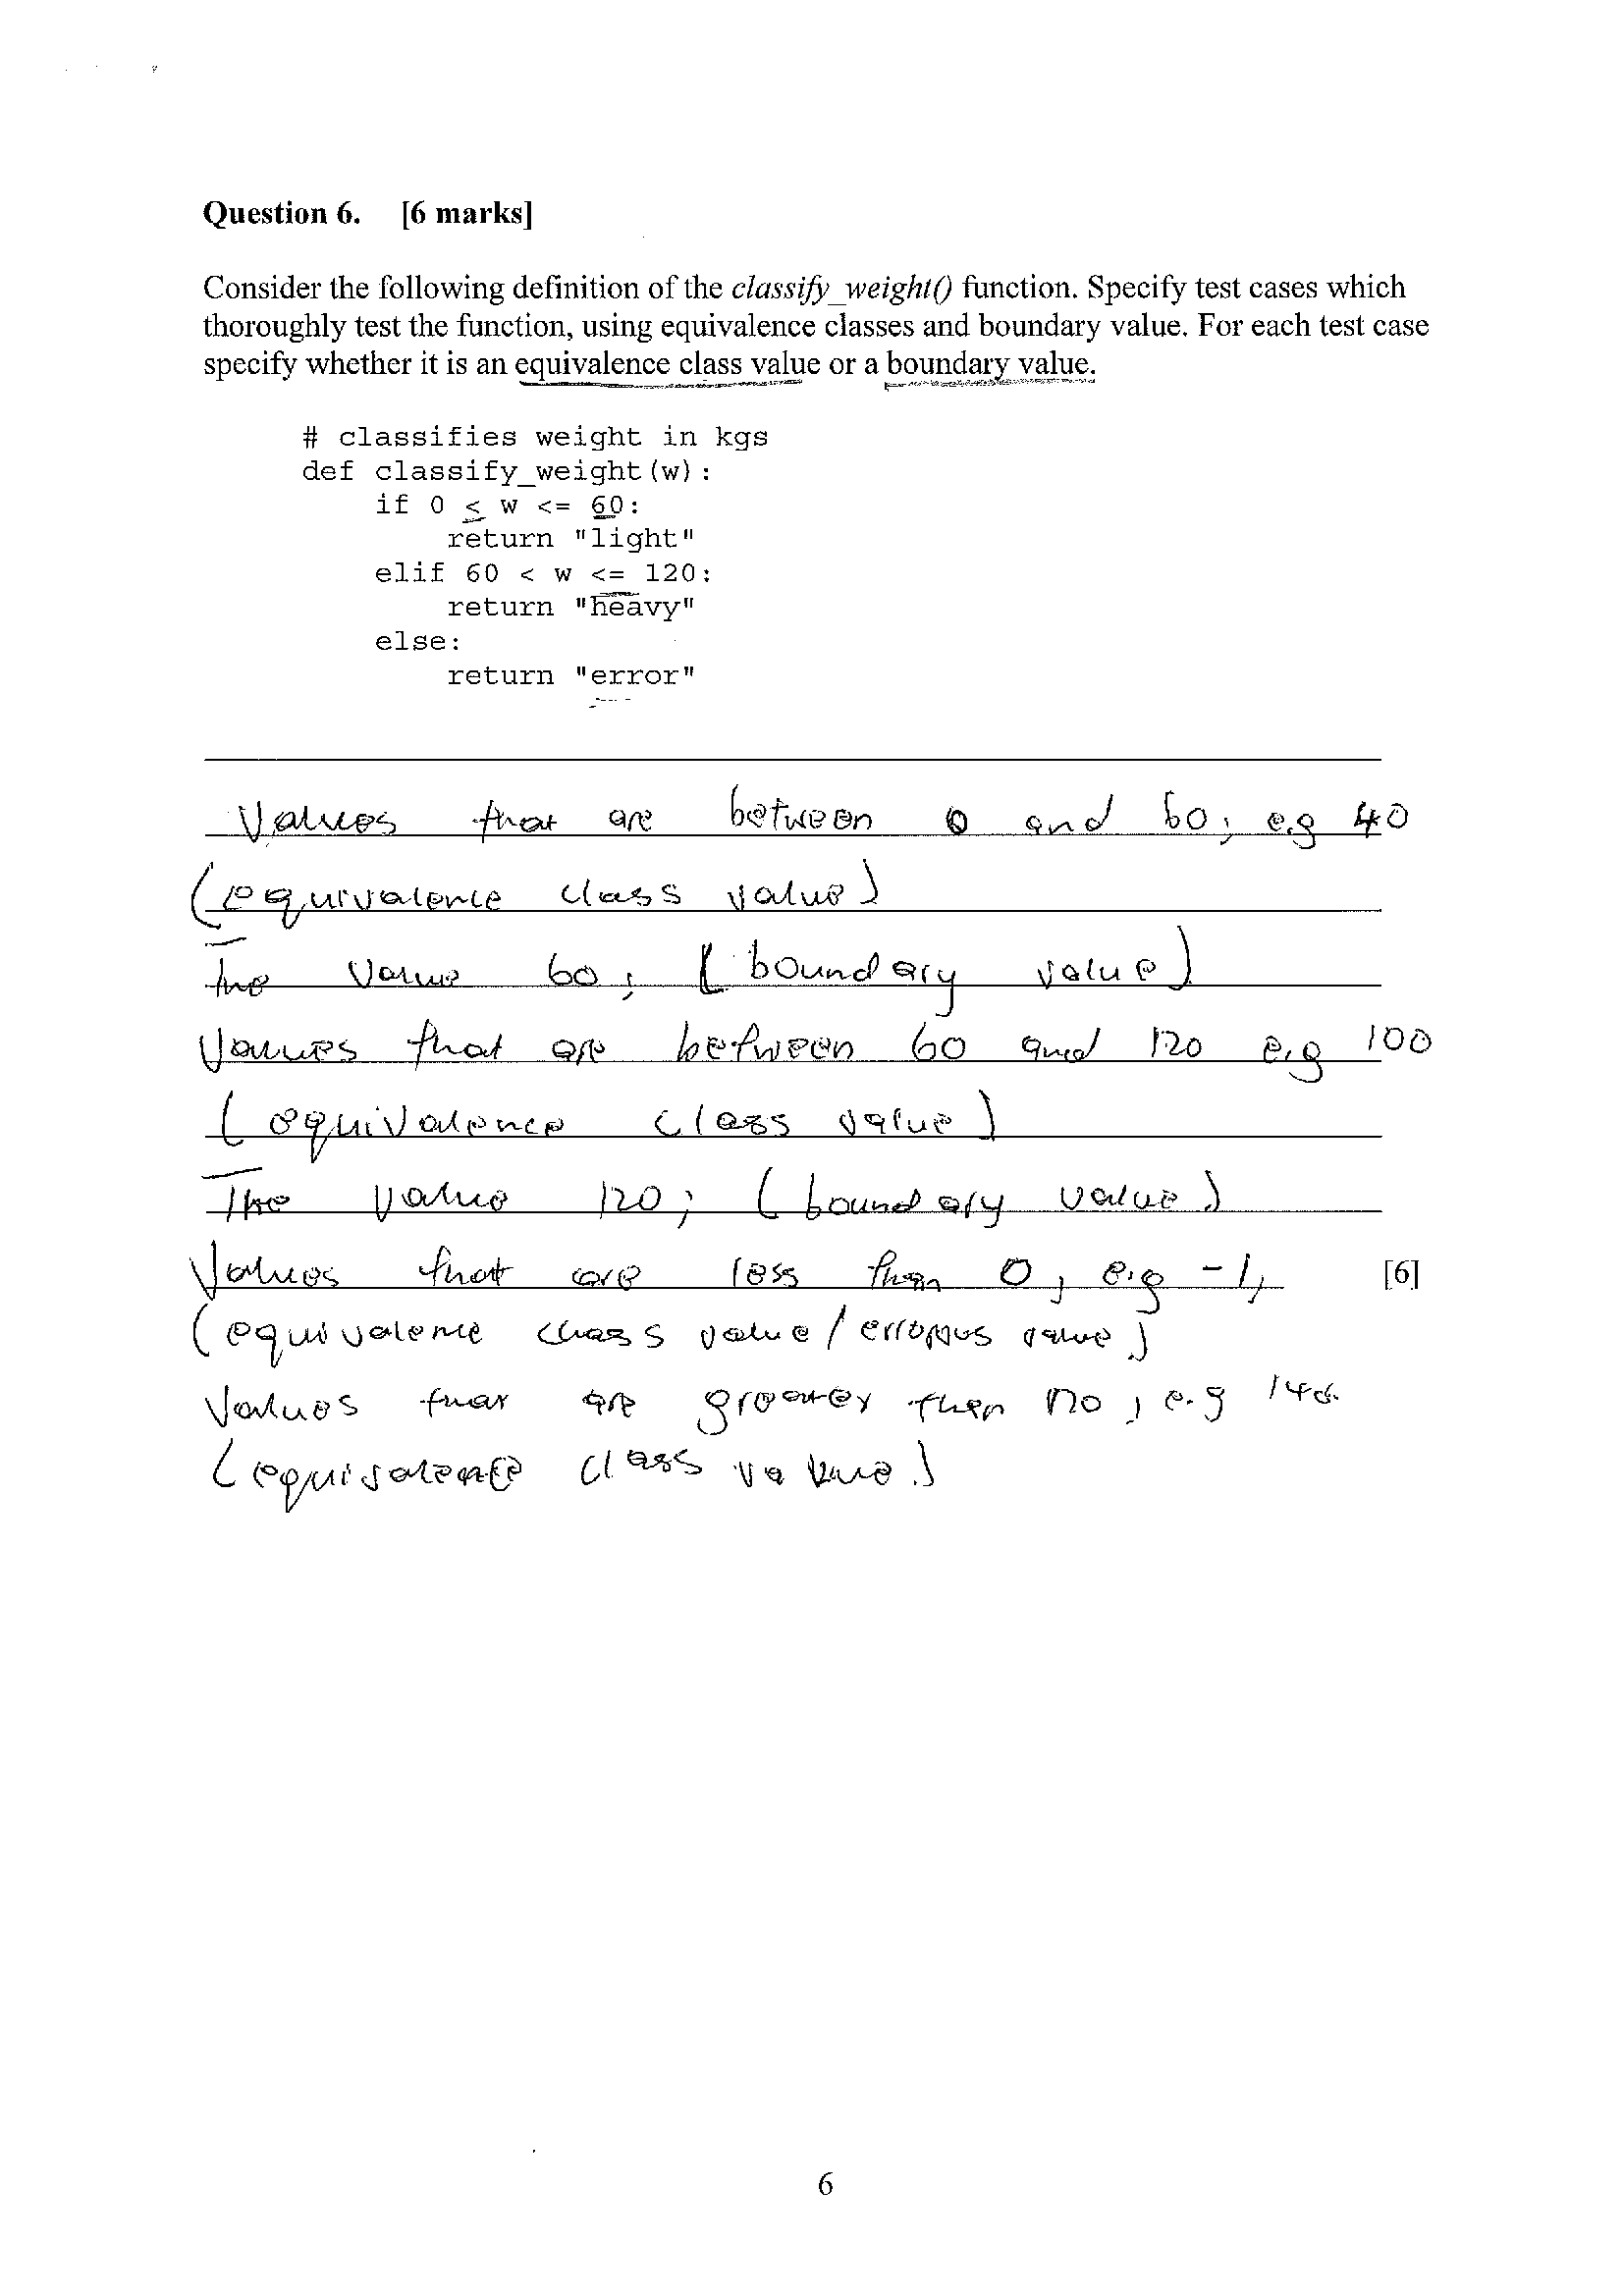 Question 6. [6 marks]
Consider the following definition of the classify_weight() function. Specify test cases which
thoroughly test the function, using equivalence classes and boundary value. For each test case
specify whether it is an equivalence class value or a boundary value.
# classifies weight in kgs
def classify_weight(w):
    if 0 < w <= 60:
        return "light"
    elif 60 < w <= 120:
        return "heavy"
    else:
        return "error"
Values that are between 0 and 60; e.g 40
(equivalence class value)
The value 60; (boundary value)
Values that are between 60 and 120 e.g 100
(equivalence class value)
The value 120; (boundary value)
Values that are less than 0, e.g -1,
[6]
(equivalence class value / value)
Values that are greater than 120, e.g
(equivalence class value.)
6